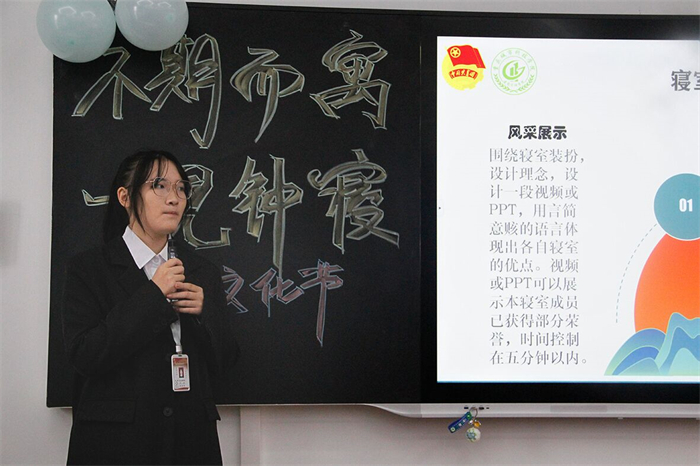 不期而寓
一见钟寝
文化节
寝
风采展示
围绕寝室装扮，
设计理念，设
计一段视频或
PPT，用言简
意赅的语言体
现出各自寝室
的优点。视频
或PPT可以展
示本寝室成员
已获得部分荣
誉，时间控制
在五分钟以内。
01